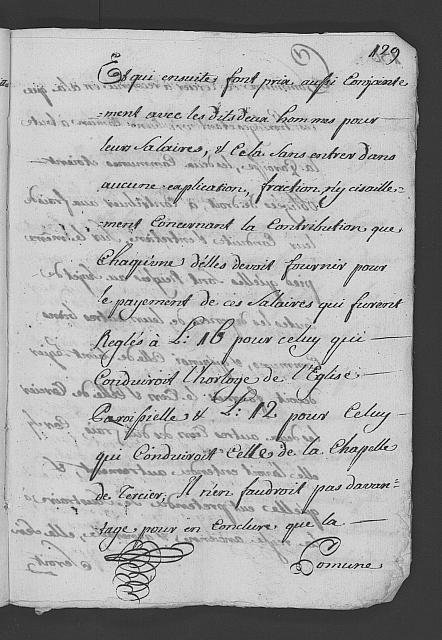 129
Et qui ensuite font prix aussi Conjointe
-ment avec les dits deux hommes pour
leur Salaires, & Cela Sans entrer dans
aucune explication, fraction, ny cisaille-
-ment Concernant la Contribution que
Chaqueme d'elles devoit fournir pour
le payement de ces Salaires qui furent
Reglés à L: 16 pour celuy qui —
Conduiroit l'horloge de L'Eglise
Paroissielle & L: 12 pour Celuy —
qui Conduiroit Celle de la Chapelle
de Tercier; Il n'en faudroit pas davan-
-tage pour en Conclure que la —
Comune